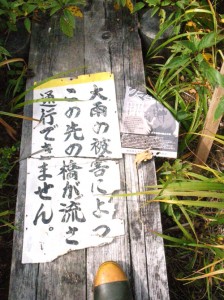 大雨の被害によっ
この先の橋が流さ
通行できません。